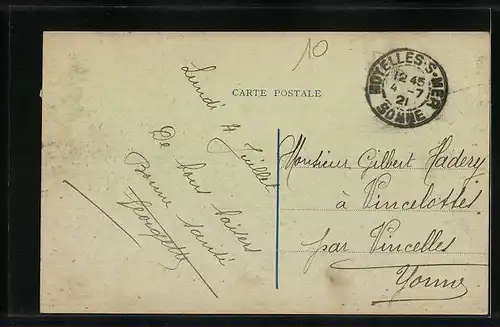 10
NOYELLES-S-MER
12 45
4 -7
21
SOMME
CARTE POSTALE
Lundi 4 Juillet
De bons baisers
Bonne santé
Georgette
Monsieur Gilbert Hadery
à Vincelottes
par Vincelles
Yonne